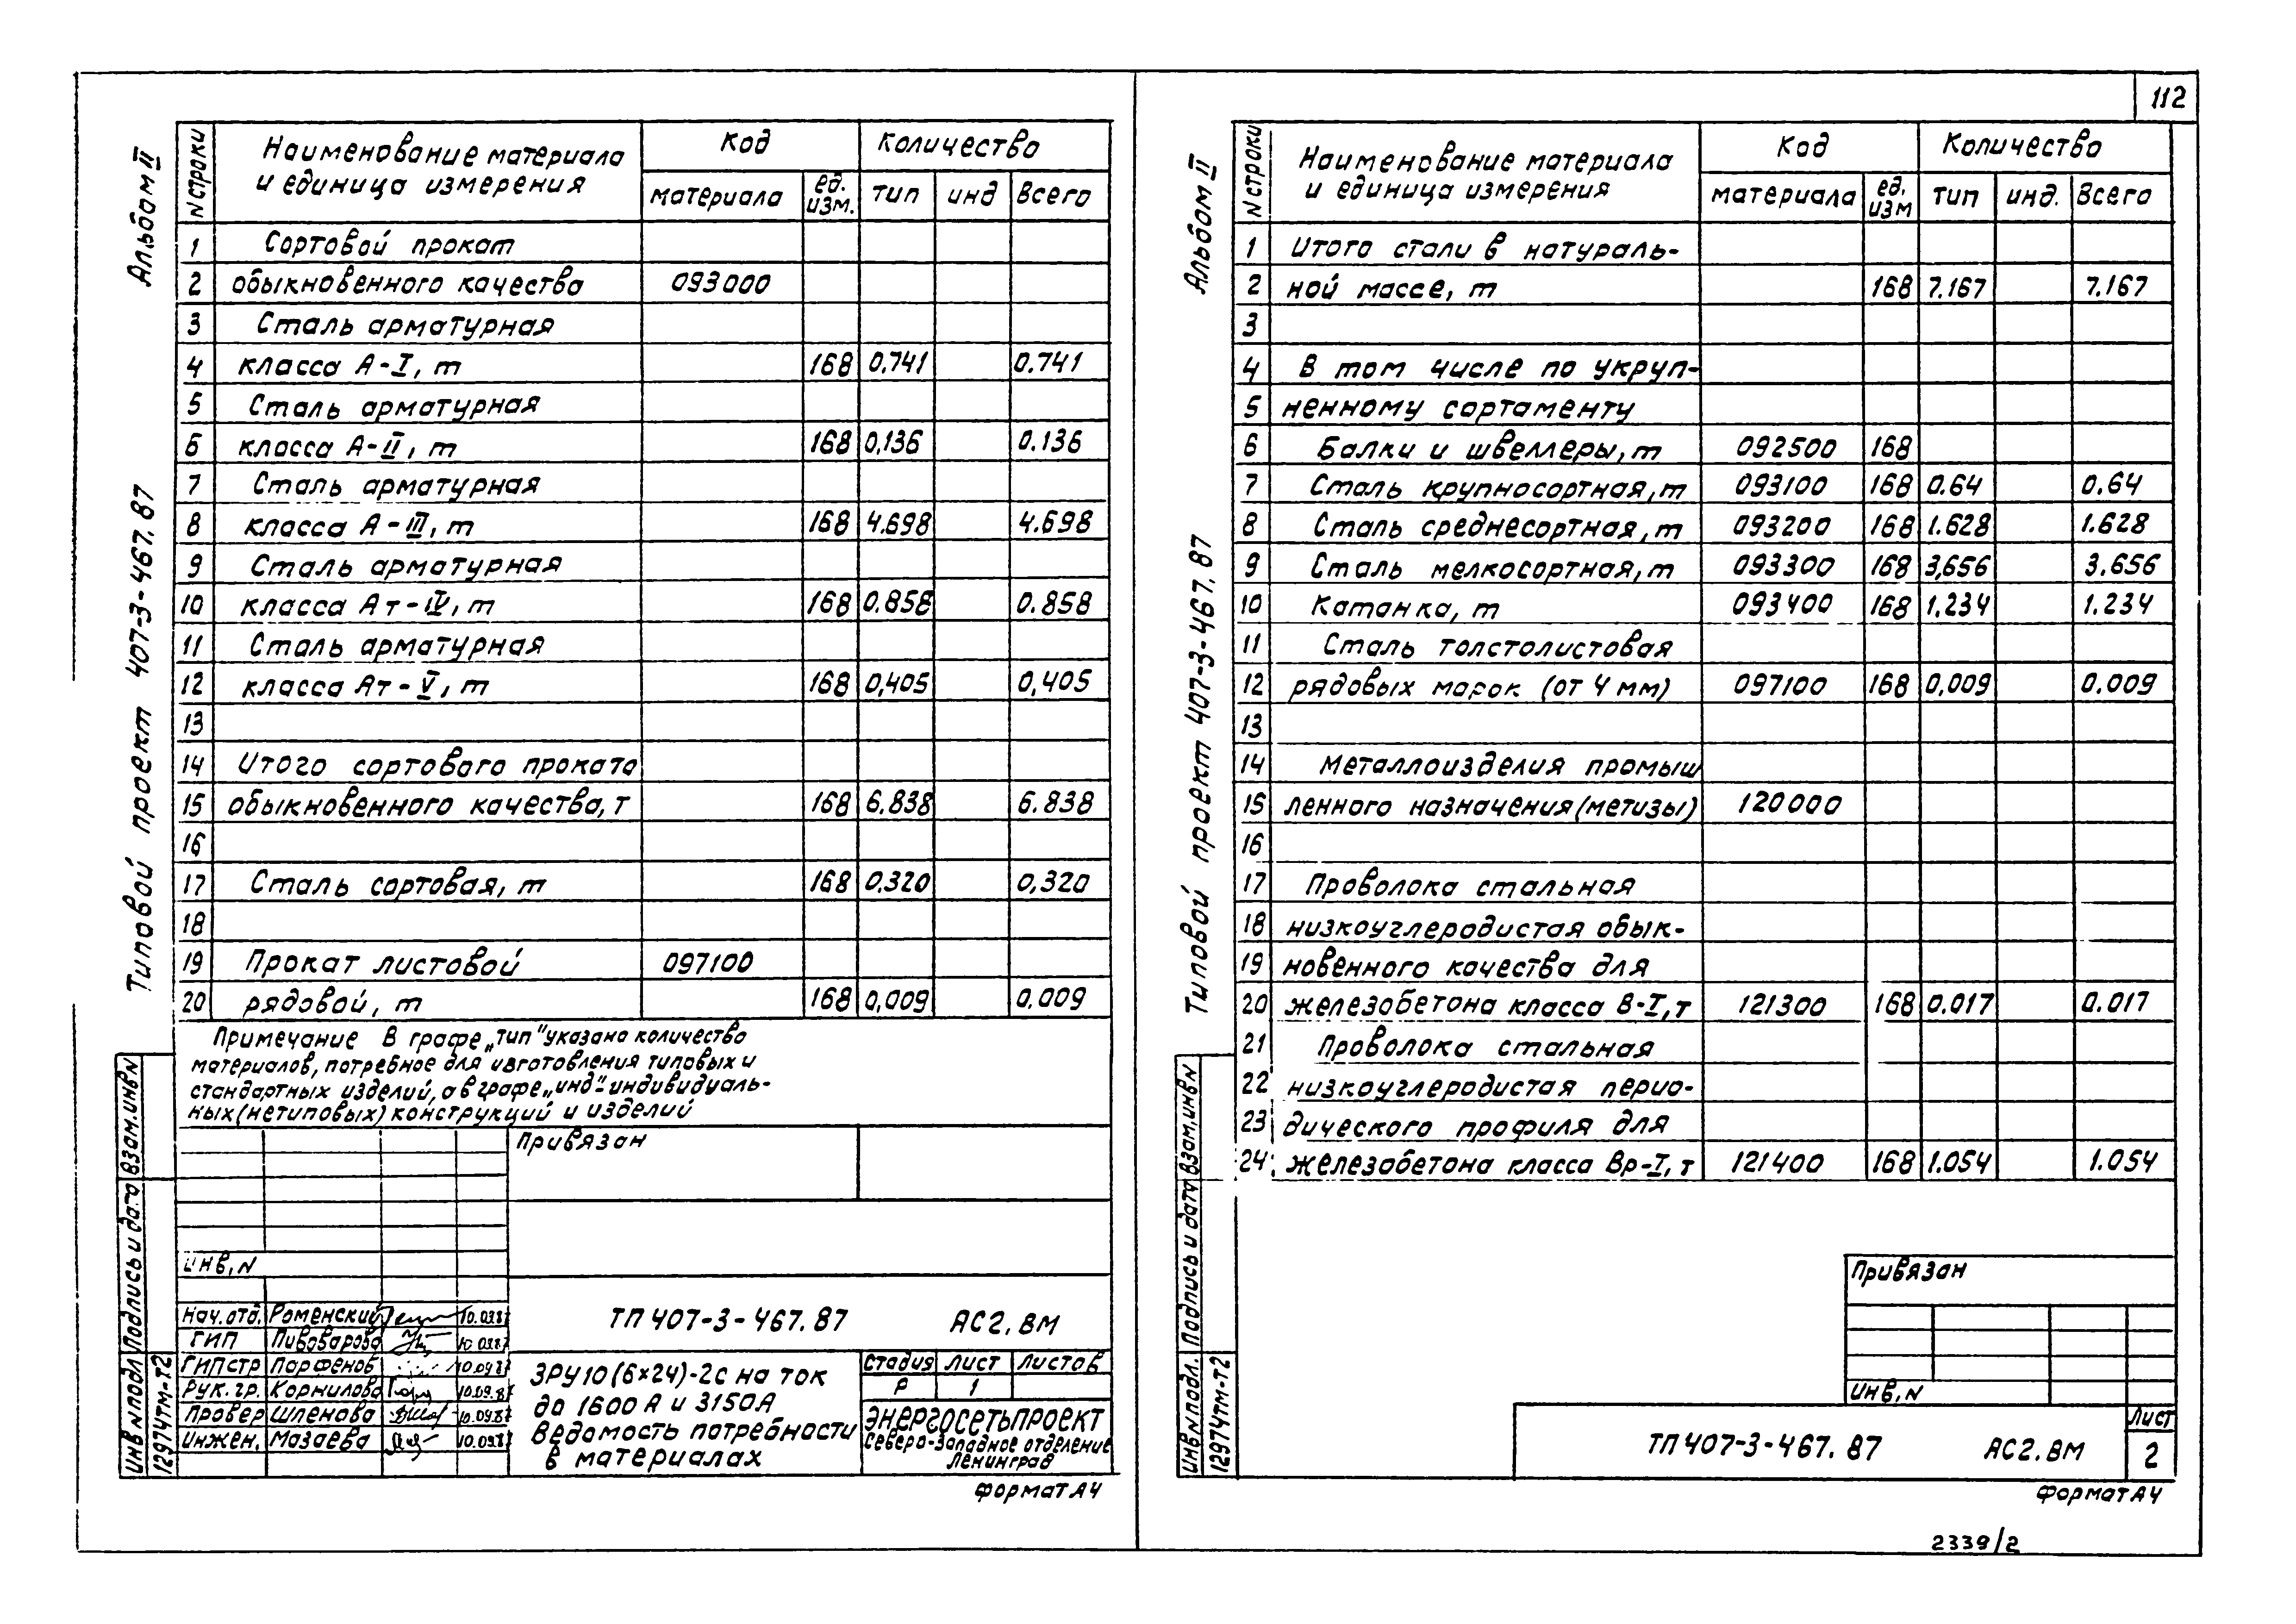 Альбом II
Типовой проект 407-3-467.87
N строки Наименование материала и единица измерения Код Количество
материала ед. изм. тип инд Всего
1 Сортовой прокат
2 обыкновенного качества 093000
3 Сталь арматурная
4 класса А-I, т 168 0.741 0.741
5 Сталь арматурная
6 класса А-II, т 168 0,136 0.136
7 Сталь арматурная
8 класса А-III, т 168 4.698 4.698
9 Сталь арматурная
10 класса Ат-IV, т 168 0.858 0.858
11 Сталь арматурная
12 класса Ат-V, т 168 0,405 0,405
13
14 Итого сортового проката
15 обыкновенного качества, т 168 6.838 6.838
16
17 Сталь сортовая, т 168 0.320 0,320
18
19 Прокат листовой 097100
20 рядовой, т 168 0,009 0.009
Примечание В графе „тип" указано количество
материалов, потребное для изготовления типовых и
стандартных изделий, а в графе „инд"-индивидуаль-
ных (нетиповых) конструкций и изделий
Привязан
Инв. N
Нач.отд. Роменский 10.09.87
ГИП Пивоварова 10.09.87
ГИП стр Парфенов 10.09.87
Рук. гр. Корнилова 10.09.87
Провер Шленова 10.09.87
Инжен. Мазаева 10.09.87
ТП 407-3-467.87 АС2.ВМ
ЗРУ10(6×24)-2С на ток
до 1600 А и 3150А
Ведомость потребности
в материалах
Стадия Лист Листов
Р 1
ЭНЕРГОСЕТЬПРОЕКТ
Северо-Западное отделение
Ленинград
Формат А4
Инв N подл Подпись и дата Взам. инв N
12974тм-т2
112
Альбом II
Типовой проект 407-3-467.87
N строки Наименование материала и единица измерения Код Количество
материала ед. изм тип инд. Всего
1 Итого стали в натураль-
2 ной массе, т 168 7.167 7.167
3
4 В том числе по укруп-
5 ненному сортаменту
6 Балки и швеллеры, т 092500 168
7 Сталь крупносортная, т 093100 168 0.64 0.64
8 Сталь среднесортная, т 093200 168 1.628 1.628
9 Сталь мелкосортная, т 093300 168 3,656 3.656
10 Катанка, т 093400 168 1.234 1.234
11 Сталь толстолистовая
12 рядовых марок (от 4 мм) 097100 168 0,009 0.009
13
14 Металлоизделия промыш
15 ленного назначения (метизы) 120000
16
17 Проволока стальная
18 низкоуглеродистая обык-
19 новенного качества для
20 железобетона класса В-I, т 121300 168 0.017 0.017
21 Проволока стальная
22 низкоуглеродистая перио-
23 дического профиля для
24 железобетона класса Вр-I, т 121400 168 1.054 1.054
Привязан
Инв. N
ТП 407-3-467.87 АС2.ВМ
Лист
2
Формат А4
Инв N подл. Подпись и дата Взам. инв N
12974тм-т2
2339/2